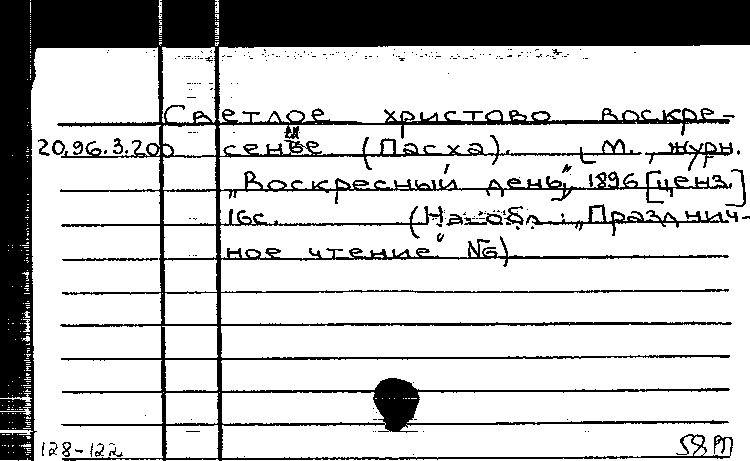 Светлое христово воскре-
20.96.3.200 сенье (Пасха). [М., журн.
„Воскресный день“], 1896 [ценз.]
16с. (На обл.: „Празднич-
ное чтение“ №6)
128-122